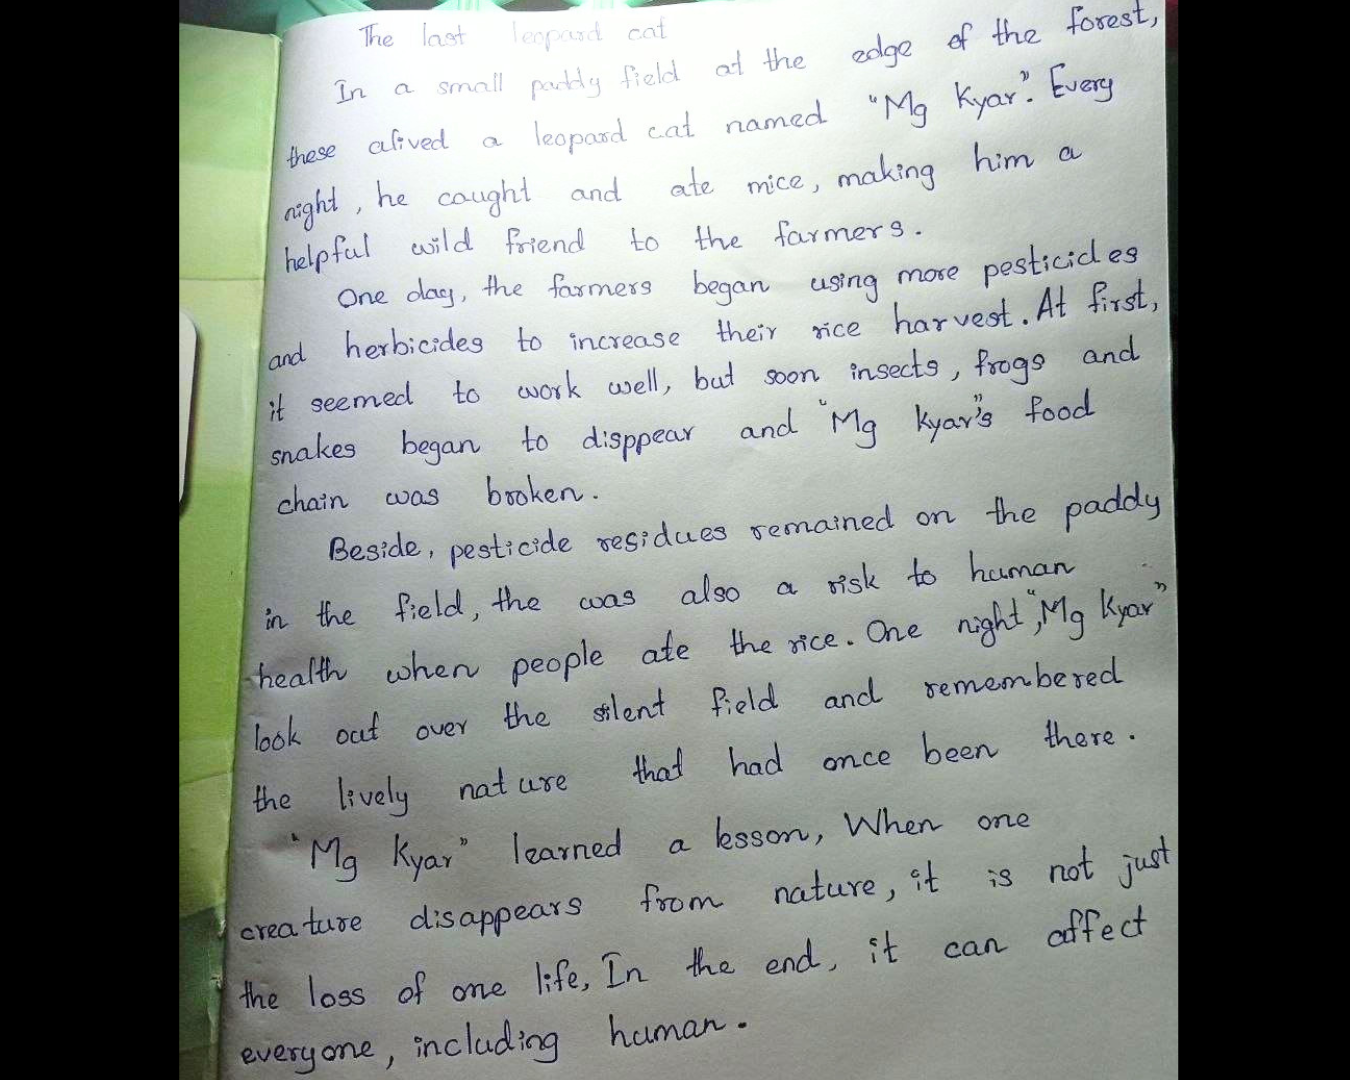 The last leopard cat
In a small paddy field at the edge of the forest,
these alived a leopard cat named "Mg Kyar". Every
night, he caught and ate mice, making him a
helpful wild friend to the farmers.
One day, the farmers began using more pesticides
and herbicides to increase their rice harvest. At first,
it seemed to work well, but soon insects, frogs and
snakes began to disppear and "Mg Kyar"s food
chain was broken.
Beside, pesticide residues remained on the paddy
in the field, the was also a risk to human
health when people ate the rice. One night, "Mg Kyar"
look out over the silent field and remembered
the lively nature that had once been there.
"Mg Kyar" learned a lesson, When one
creature disappears from nature, it is not just
the loss of one life, In the end, it can affect
everyone, including human.